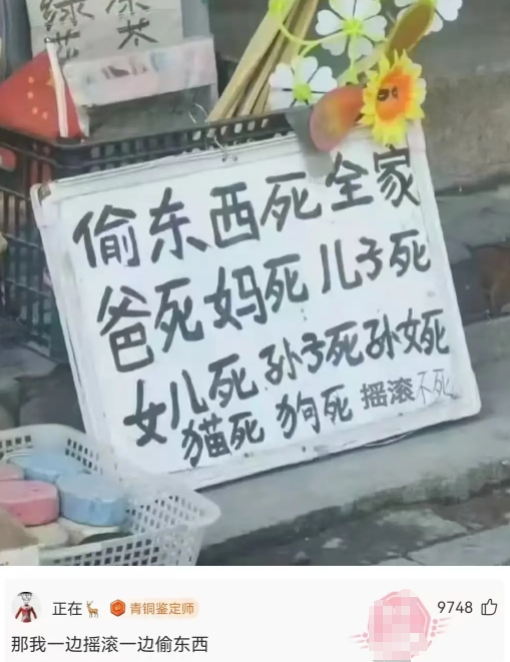 绿茶
凉茶
偷东西死全家
爸死妈死儿子死
女儿死孙子死孙女死
猫死 狗死 摇滚不死
正在🦌 青铜鉴定师
9748
那我一边摇滚一边偷东西